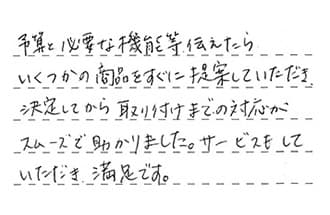 予算と必要な機能等伝えたら
いくつかの商品をすぐに提案していただき
決定してから取り付けまでの対応が
スムーズで助かりました。サービスもして
いただき満足です。